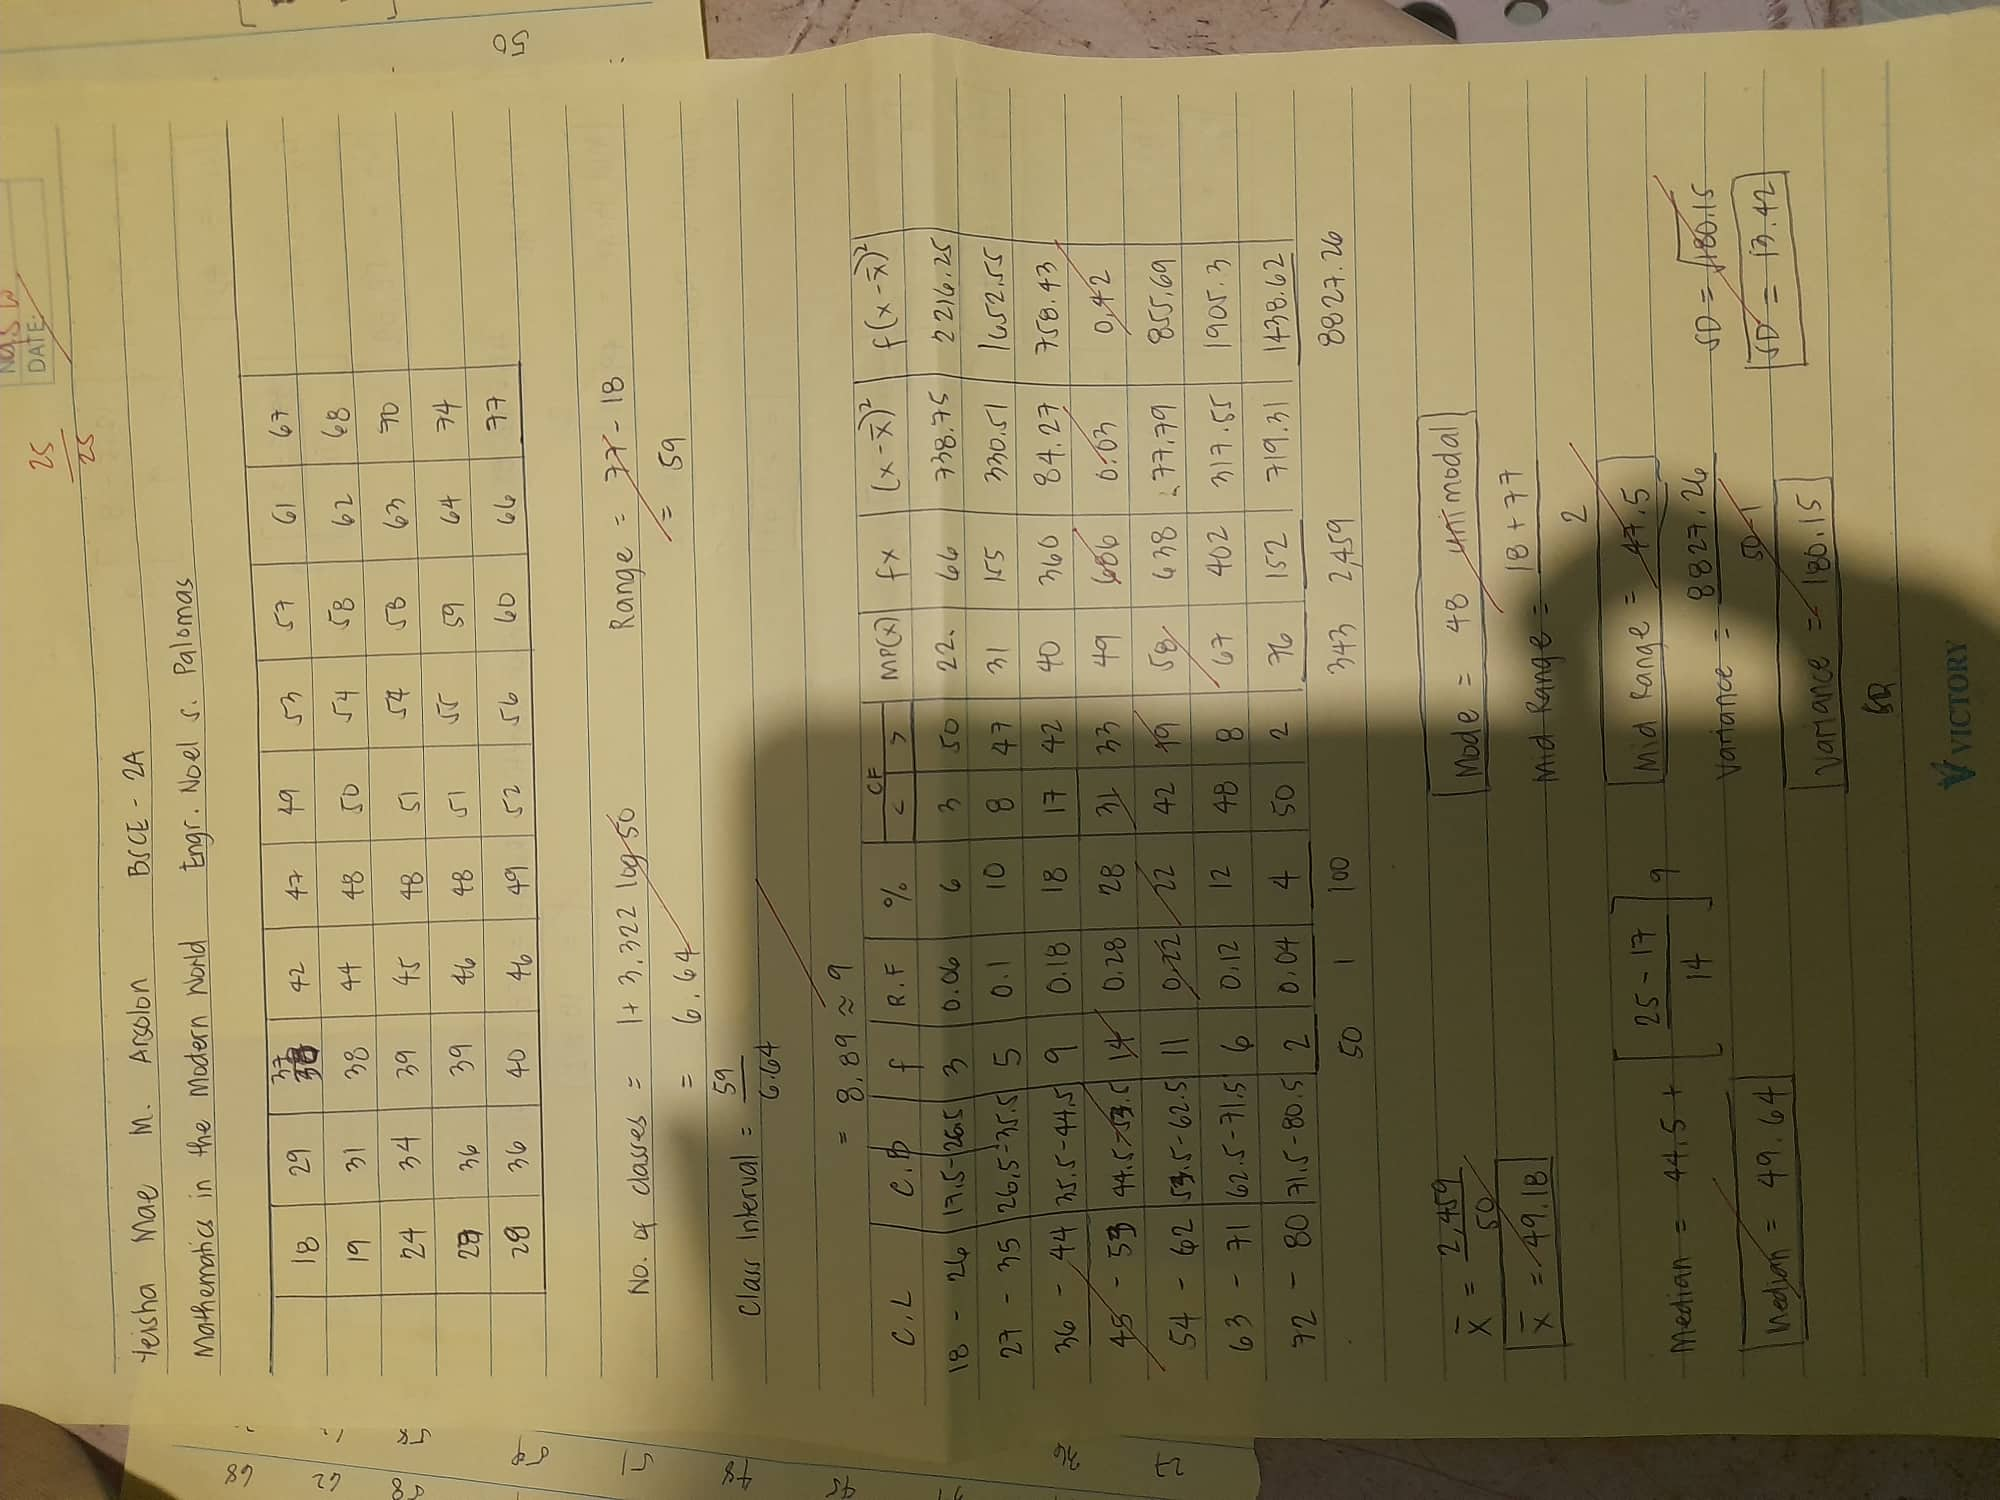 DATE:
25
25
Yeisha Mae M. Arsolon BSCE - 2A
Mathematics in the Modern World Engr. Noel S. Palomas
18 29 37 42 47 49 53 57 61 67
19 31 38 44 48 50 54 58 62 68
24 34 39 45 48 51 54 58 63 70
36 39 46 48 51 55 59 64 74
36 40 46 49 52 56 60 66 77
No. of classes = 1 + 3.322 log 50 Range = 77 - 18
= 6.64 = 59
Class Interval = 59
6.64
= 8.89 ≈ 9
C.L C.B f R.F % CF MP(X) fx (x-x̄)² f(x-x̄)²
< >
18 - 26 17.5-26.5 3 0.06 6 3 50 22 66 738.75 2216.25
27 - 35 26.5-35.5 5 0.1 10 8 47 31 155 330.51 1652.55
36 - 44 35.5-44.5 9 0.18 18 17 42 40 360 84.27 758.43
45 - 53 44.5-53.5 14 0.28 28 31 33 49 686 0.03 0.42
54 - 62 53.5-62.5 11 0.22 22 42 19 58 638 77.79 855.69
63 - 71 62.5-71.5 6 0.12 12 48 8 67 402 317.55 1905.3
72 - 80 71.5-80.5 2 0.04 4 50 2 76 152 719.31 1438.62
50 1 100 343 2,459 8827.26
x̄ = 2,459
50
x̄ = 49.18
Mode = 48 unimodal
Mid Range = 18 + 77
2
Mid Range = 47.5
Median = 44.5 + [25 - 17
14] 9
Median = 49.64
Variance = 8827.26
50-1
Variance = 180.15
SD = √180.15
SD = 13.42
50
VICTORY